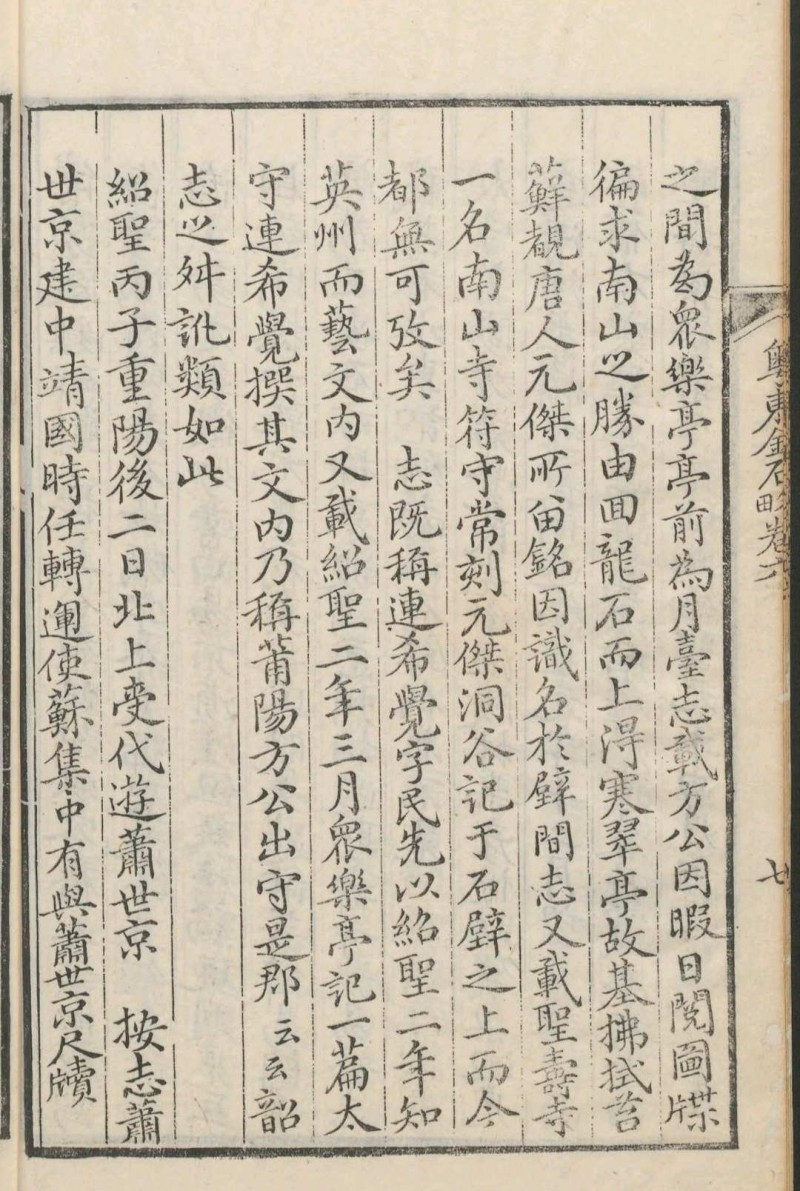 之間為眾樂亭亭前為月臺志載方公因暇日閱圖牒
徧求南山之勝由回龍石而上得寒翠亭故基拂拭苔
蘚覩唐人元傑所留銘因識名於壁間志又載聖壽寺
一名南山寺符守常刻元傑洞谷記于石壁之上而今
都無可攷矣　志既稱連希覺字民先以紹聖二年知
英州而藝文内又載紹聖二年三月眾樂亭記一篇太
守連希覺撰其文内乃稱莆陽方公出守是郡云云韶
志之舛訛類如此
紹聖丙子重陽後二日北上受代遊蕭世京　按志蕭
世京建中靖國時任轉運使蘇集中有與蕭世京尺牘
粵東金石略卷六
七